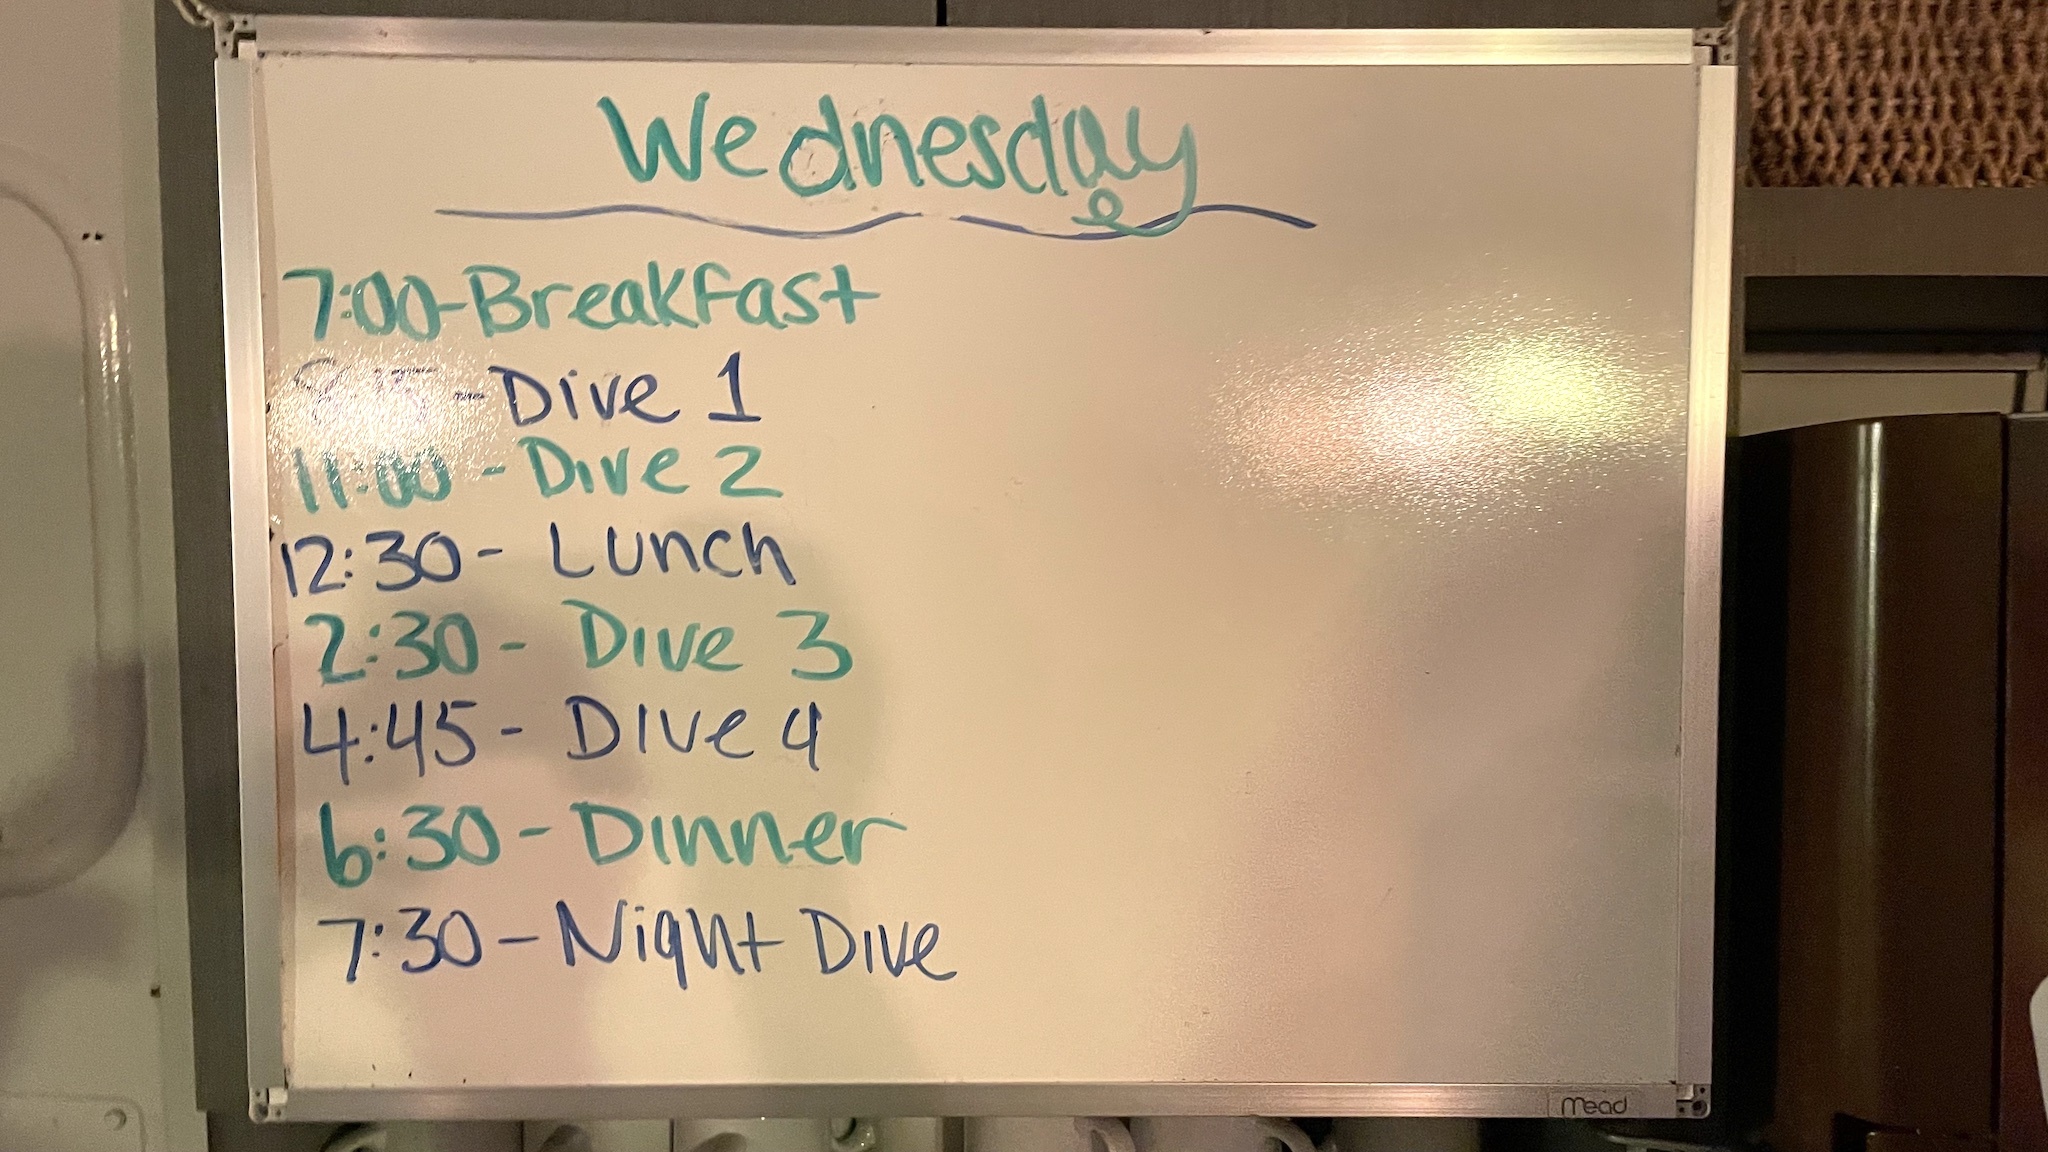 Wednesday
7:00-Breakfast
8:15-Dive 1
11:00-Dive 2
12:30- Lunch
2:30- Dive 3
4:45- Dive 4
6:30-Dinner
7:30-Night Dive
mead